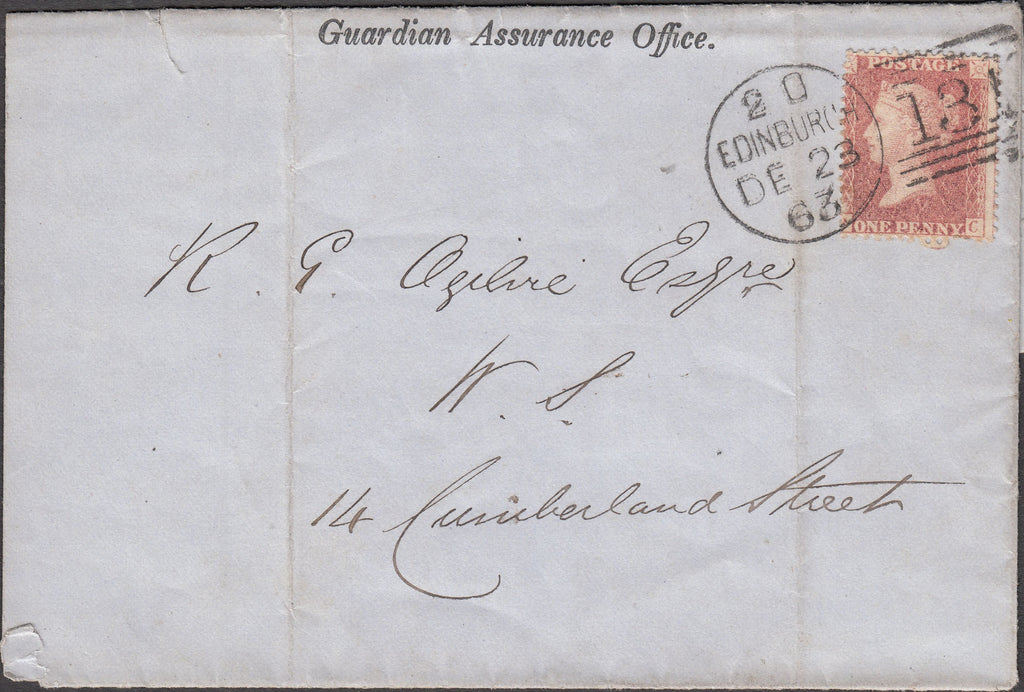 Guardian Assurance Office.
2 0
EDINBURGH
DE 23
63
POSTAGE
131
ONE PENNY
C
R. G. Ogilvie Esqre
W. S.
14 Cumberland Street